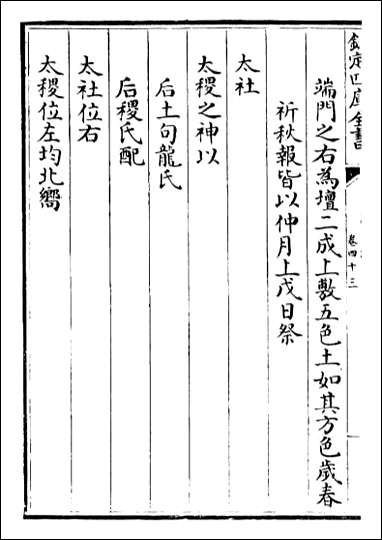 欽定四庫全書
卷四十三
端門之右為壇二成上敷五色土如其方色歲春
祈秋報皆以仲月上戊日祭
太社
太稷之神以
后土句龍氏
后稷氏配
太社位右
太稷位左均北嚮